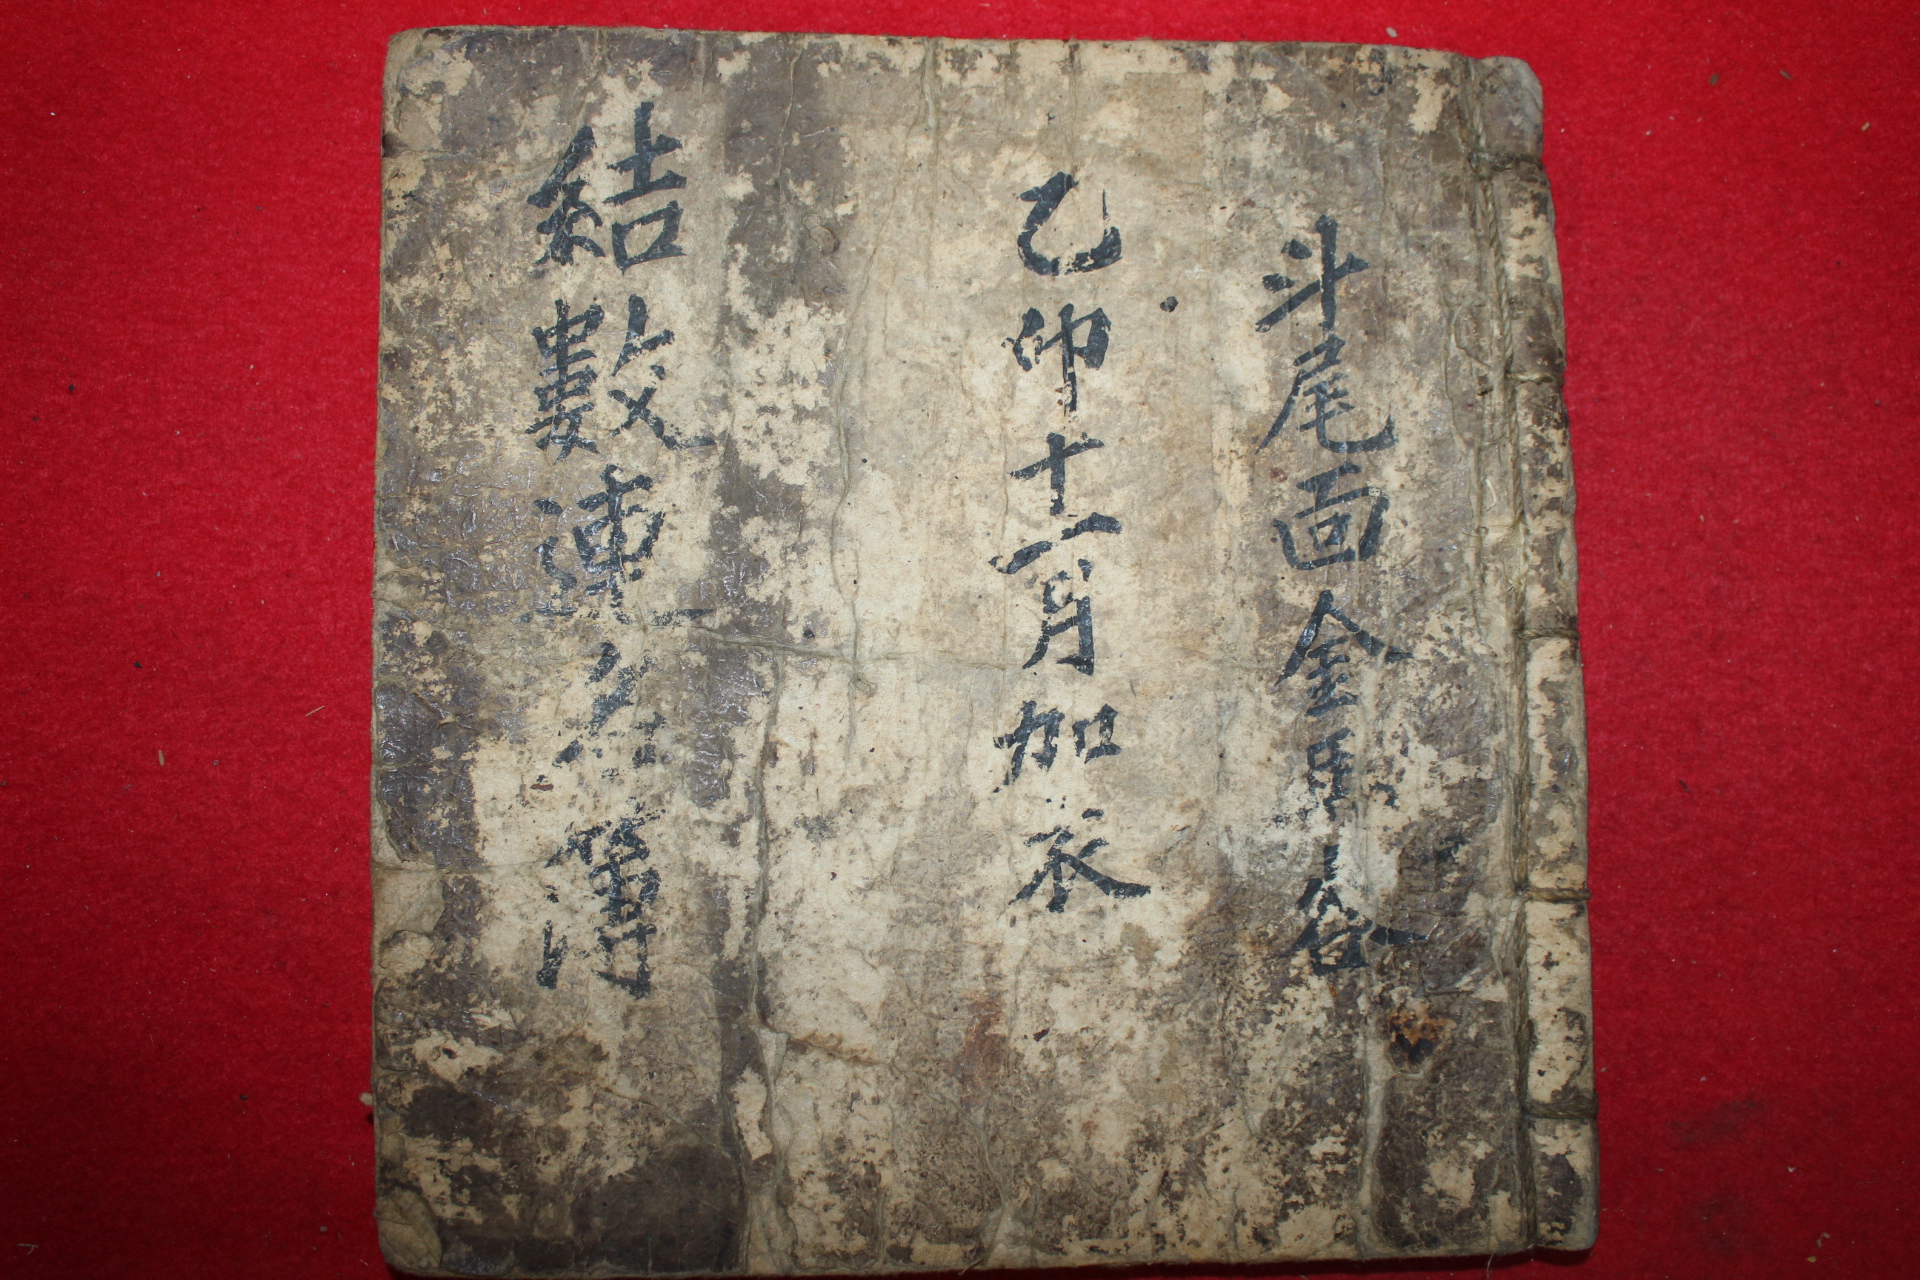 斗尾面金谷
乙卯十一月加衣
結數連名簿